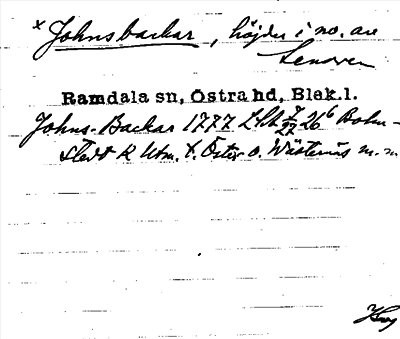 x Johnsbackar, höjder i no. av
Senoren
Ramdala sn, Östra hd, Blek.l.
Johns-Backar 1777 Bohm-
stedt K Utm. t. Öster o. Wästerås m. m.